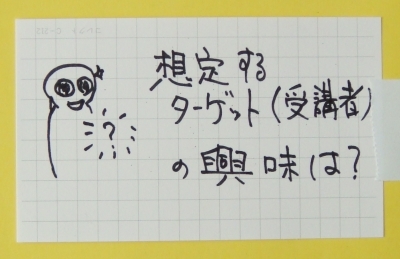 想定する
ターゲット(受講者)
の興味は?
?